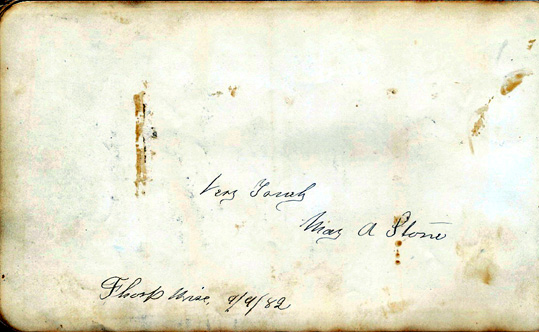 Very Truly
May A Stone
Thorp Wisc. 9/9/82